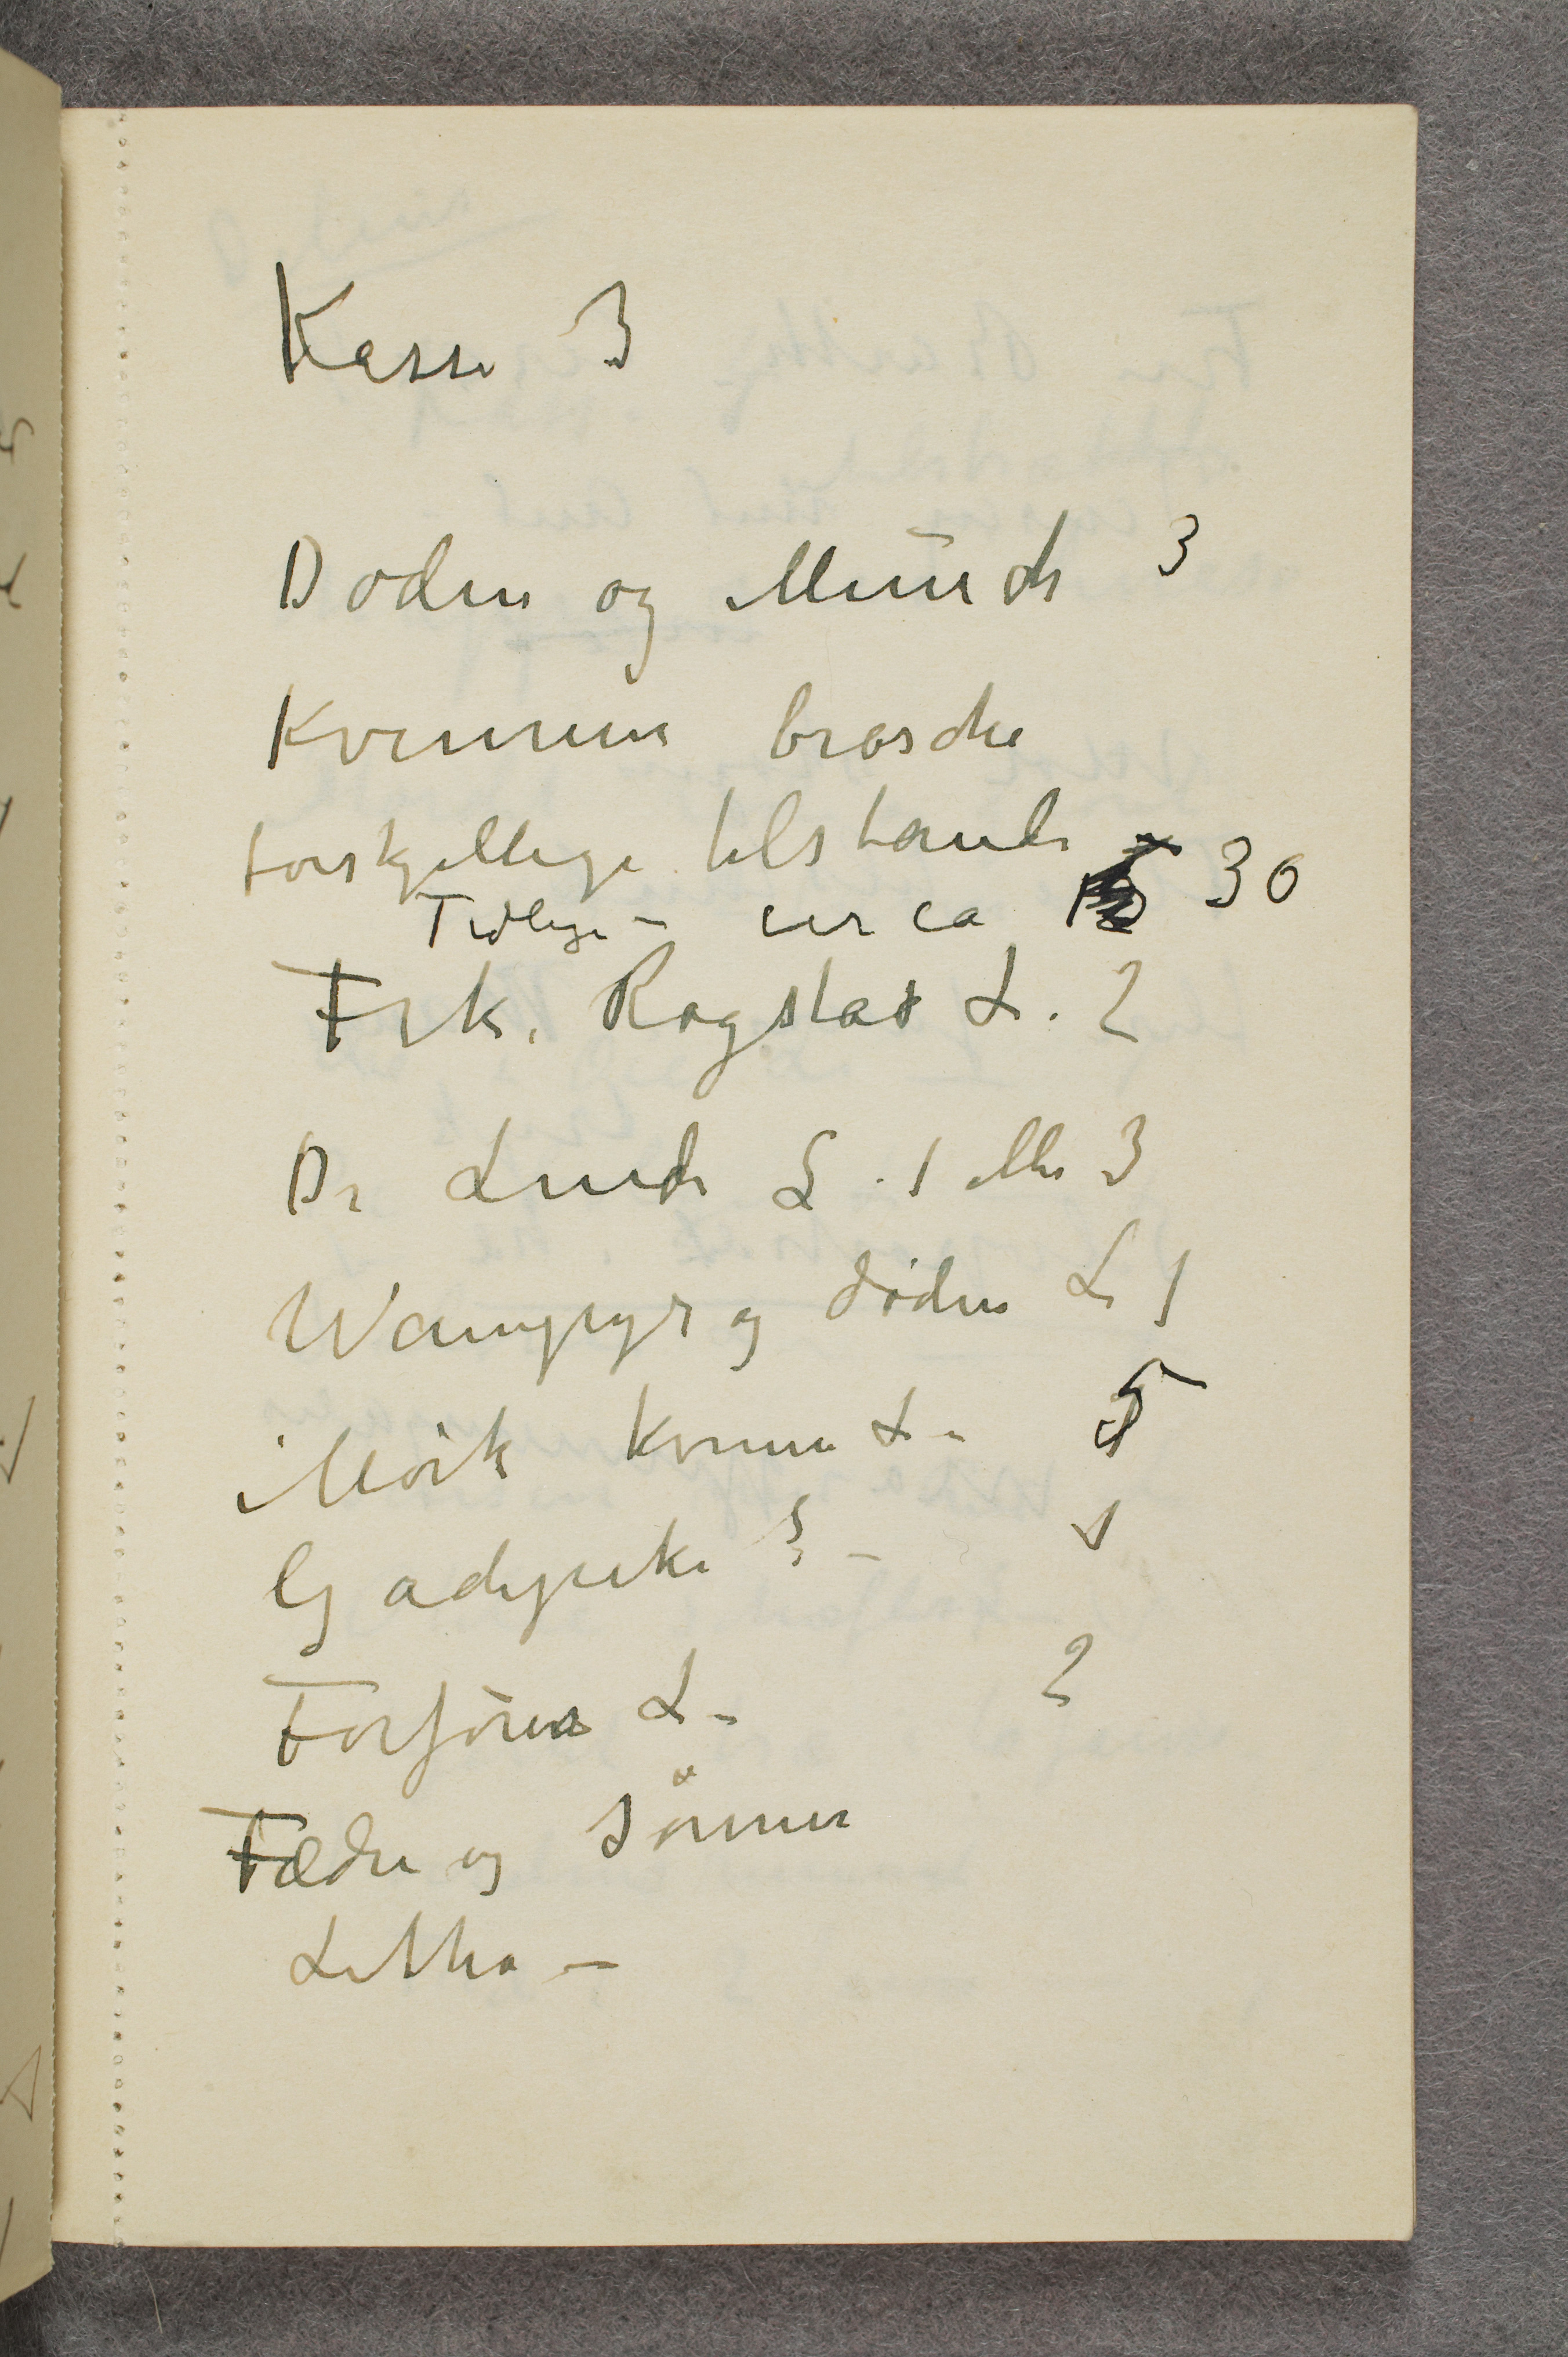 Kasse 3
Døden og Munch 3
Kvinnen brosche
forskjellige tilstande
Tidlige – circa 30
Frk. Rogstad L. 2
Dr Linde L. 1 eller 3
Wampyr og døden L 1
Mørk kvinne L – 5
Gadepike ? – 1
Forføren L – 2
Fædre og Sønner
Litho –